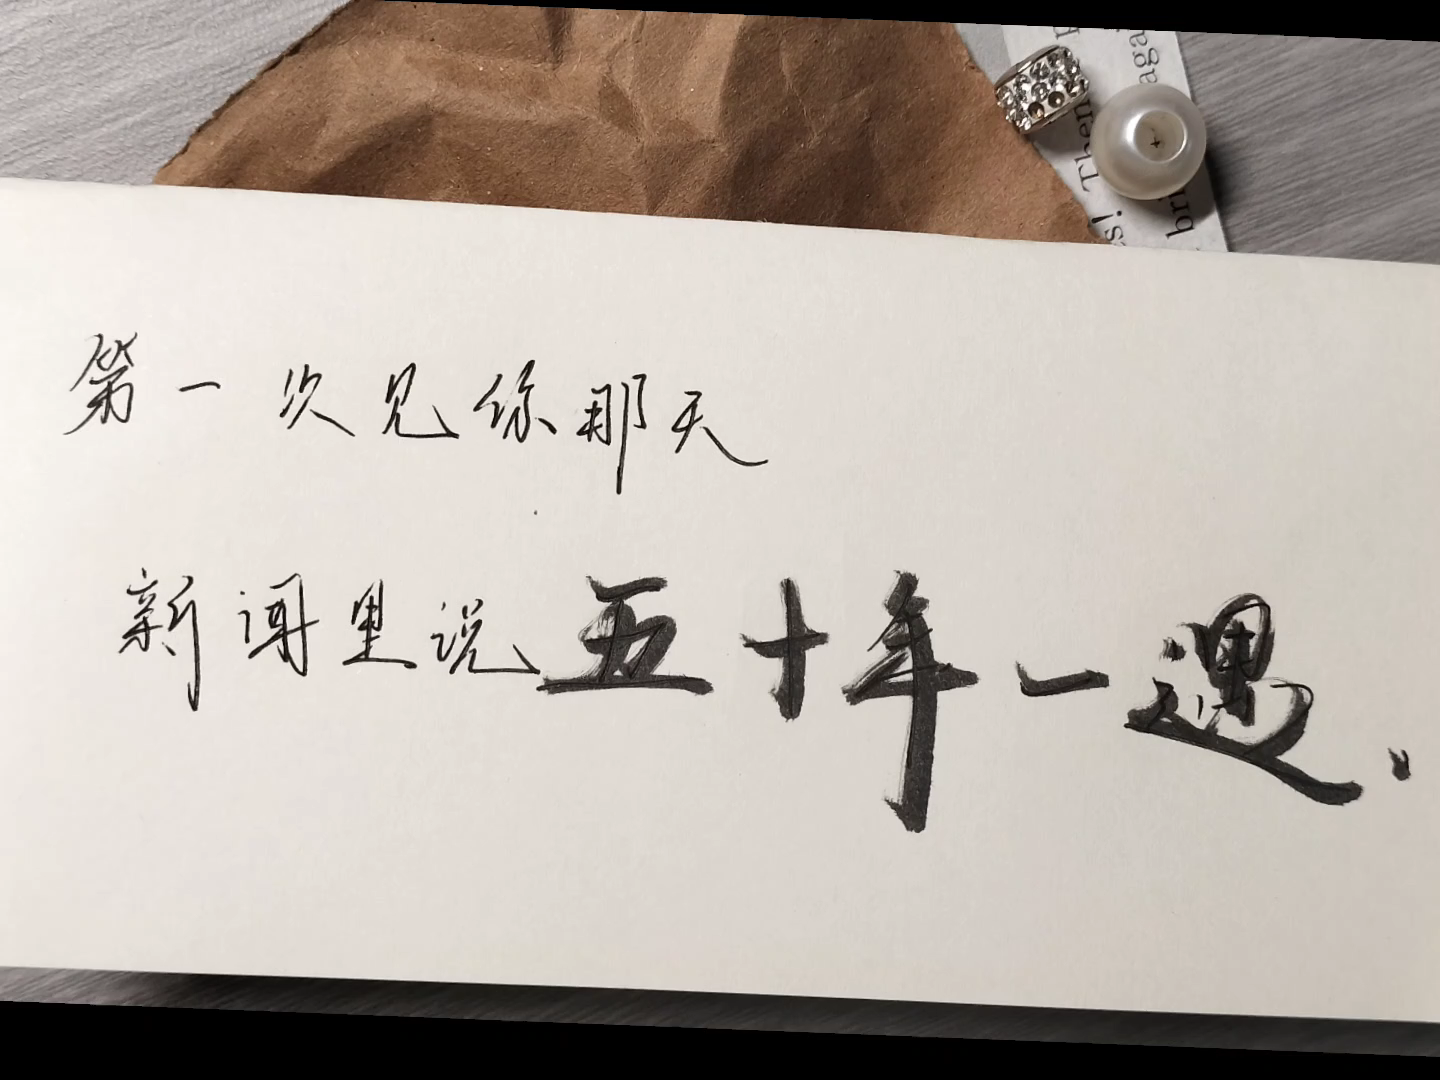 第一次见你那天
新闻里说五十年一遇.
Then
s!
br
aga